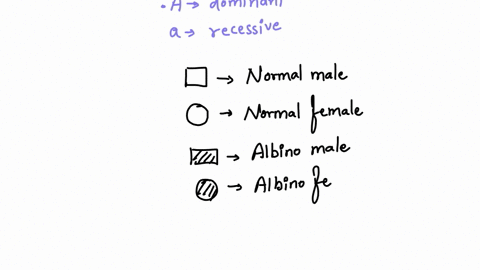 • A → dominant
a → recessive
→ Normal male
→ Normal female
→ Albino male
→ Albino fe